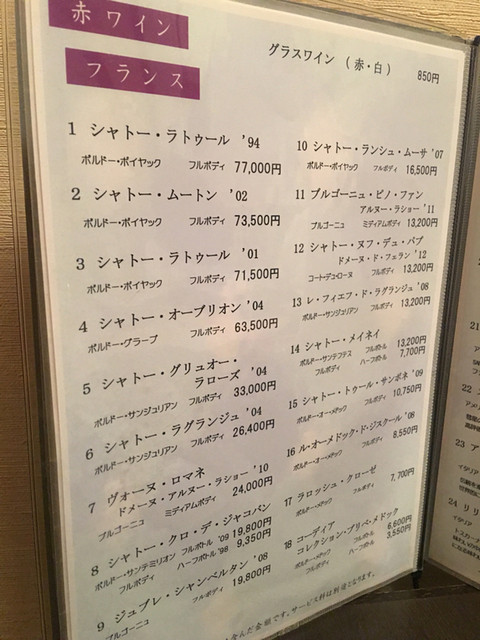 赤ワイン
フランス
グラスワイン (赤・白) 850円
1 シャトー・ラトゥール '94
ボルドー・ポイヤック フルボディ 77,000円
2 シャトー・ムートン '02
ボルドー・ポイヤック フルボディ 73,500円
3 シャトー・ラトゥール '01
ボルドー・ポイヤック フルボディ 71,500円
4 シャトー・オーブリオン '04
ボルドー・グラーブ フルボディ 63,500円
5 シャトー・グリュオー・
ラローズ '04
ボルドー・サンジュリアン フルボディ 33,000円
6 シャトー・ラグランジュ '04
ボルドー・サンジュリアン フルボディ 26,400円
7 ヴォーヌ・ロマネ
ドメーヌ・アルヌー・ラショー '10
ブルゴーニュ ミディアムボディ 24,000円
8 シャトー・クロ・デ・ジャコバン
ボルドー・サンテミリオン フルボトル '09 19,800円
フルボディ ハーフボトル '98 9,350円
9 ジュブレ・シャンベルタン '08
ブルゴーニュ フルボディ 19,800円
10 シャトー・ランシュ・ムーサ '07
ボルドー・ポイヤック フルボディ 16,500円
11 ブルゴーニュ・ピノ・ファン
アルヌー・ラショー '11
ブルゴーニュ ミディアムボディ 13,200円
12 シャトー・ヌフ・デュ・パプ
ドメーヌ・ド・フェラン '12
コート・デュ・ローヌ フルボディ 13,200円
13 レ・フィエフ・ド・ラグランジュ '08
ボルドー・サンジュリアン フルボディ 13,200円
14 シャトー・メイネイ
ボルドー・サンテステフ フルボトル 13,200円
フルボディ ハーフボトル 7,700円
15 シャトー・トゥール・サンボネ '09
ボルドー・オー・メドック フルボディ 10,750円
16 ル・オーメドック・ド・ジスクール '08
ボルドー・オー・メドック フルボディ 8,550円
17 ラロッシュ・クローゼ
ボルドー・メドック フルボディ 7,700円
18 コーディア
コレクション・プリベ・メドック
ボルドー・メドック フルボトル 6,600円
フルボディ ハーフボトル 3,550円
含んだ金額です。サービス料は別途となります。
21
22
23 ア
イタリア
24 リリ
イタリア